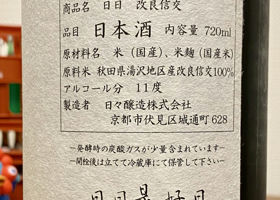 商品名 日日 改良信交
品目 日本酒 内容量 720ml
原材料名 米(国産)、米麹(国産米)
原料米 秋田県湯沢地区産改良信交100%
アルコール分 11度
製造者 日々醸造株式会社
京都市伏見区城通町628
−発酵時の炭酸ガスが少量含まれています−
−開栓後は立てて冷蔵庫にて保管して下さい−
日日是好日